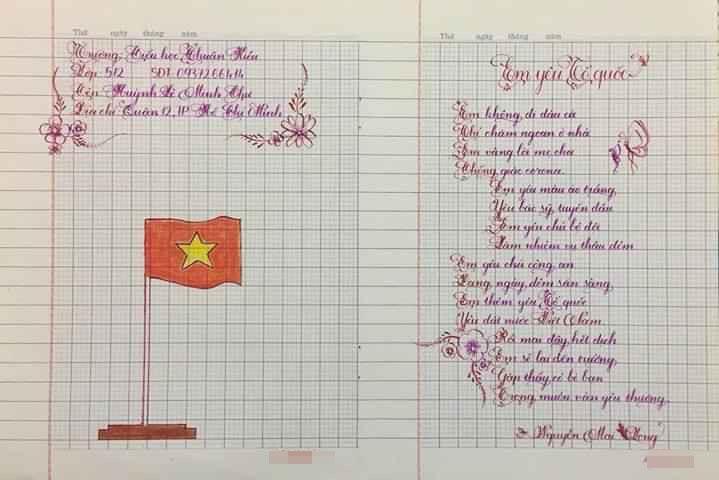 Thứ ngày tháng năm
Trường: Tiểu học Thuận Kiều
Lớp: 5/2 SĐT: 0937266414
Tên: Huỳnh Lê Minh Thư
Địa chỉ: Quận 12, TP Hồ Chí Minh
Thứ ngày tháng năm
Em yêu Tổ quốc
Em không đi đâu cả
Chỉ chăm ngoan ở nhà
Em vâng lời mẹ cha
Chống giặc corona.
Em yêu màu áo trắng,
Yêu bác sỹ tuyến đầu
Em yêu chú bộ đội
Làm nhiệm vụ thâu đêm
Em yêu chú công an
Đang ngày đêm sẵn sàng,
Em thêm yêu Tổ quốc
Yêu đất nước Việt Nam.
Rồi mai đây hết dịch
Em sẽ lại đến trường,
Gặp thầy, cô bè bạn
Trong muôn vàn yêu thương.
Nguyễn Mai Long